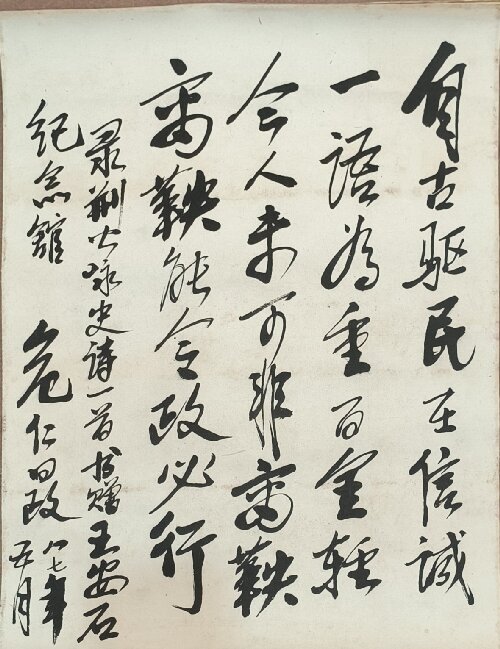 自古驱民在信诚
一语为重百金轻
今人未可非商鞅
商鞅能令政必行
录荆公咏史诗一首书赠王安石
纪念馆 危仁晸 八七年
五月